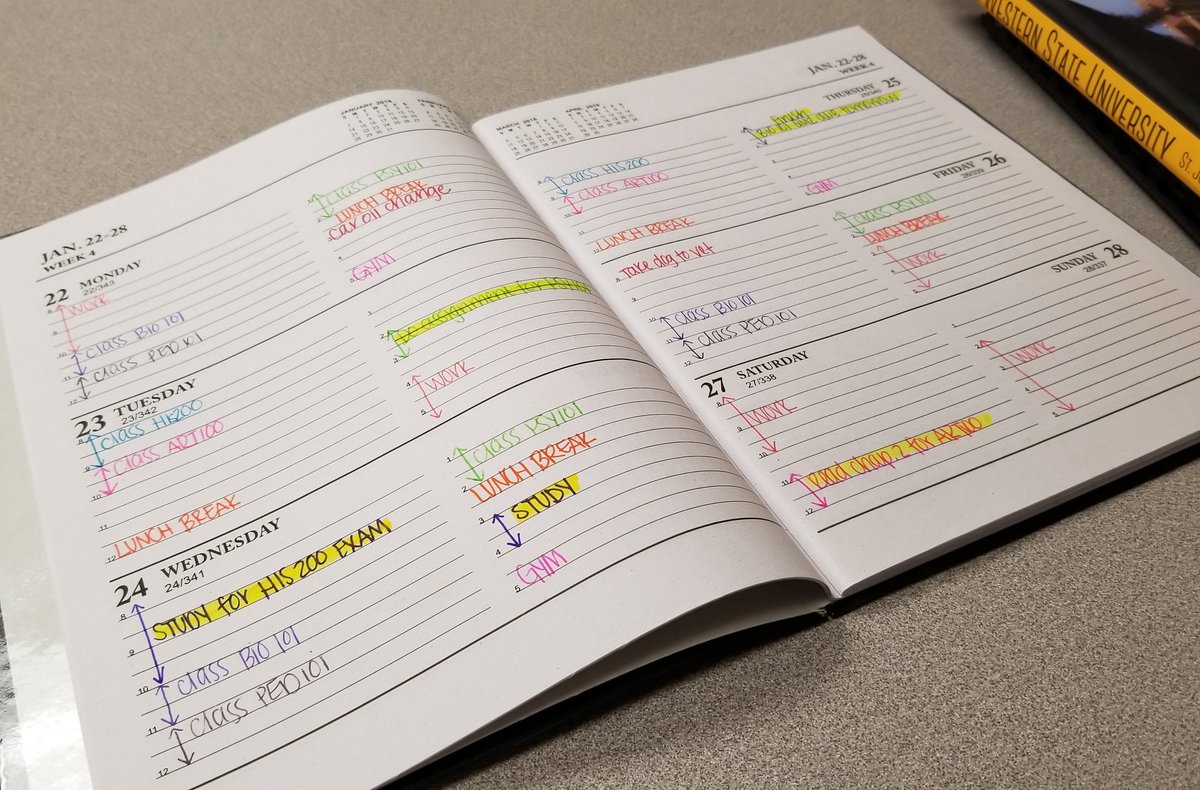 JAN. 22-28
WEEK 4
JANUARY 2018
22 MONDAY
22/343
WORK
class BIO 101
class PED 101
class PSY101
LUNCH BREAK
car oil change
GYM
23 TUESDAY
23/342
class HIS200
class ART100
LUNCH BREAK
assignment for
WORK
24 WEDNESDAY
24/341
STUDY FOR HIS 200 EXAM
class BIO 101
class PED 101
class PSY101
LUNCH BREAK
STUDY
GYM
JAN. 22-28
WEEK 4
MARCH 2018
APRIL 2018
THURSDAY 25
25/340
class HIS200
class ART100
LUNCH BREAK
finish
GYM
FRIDAY 26
26/339
Take dog to vet
class BIO 101
class PED 101
class PSY101
LUNCH BREAK
WORK
27 SATURDAY
27/338
WORK
Read chap. 2 for ART100
SUNDAY 28
28/337
WORK
WESTERN STATE UNIVERSITY